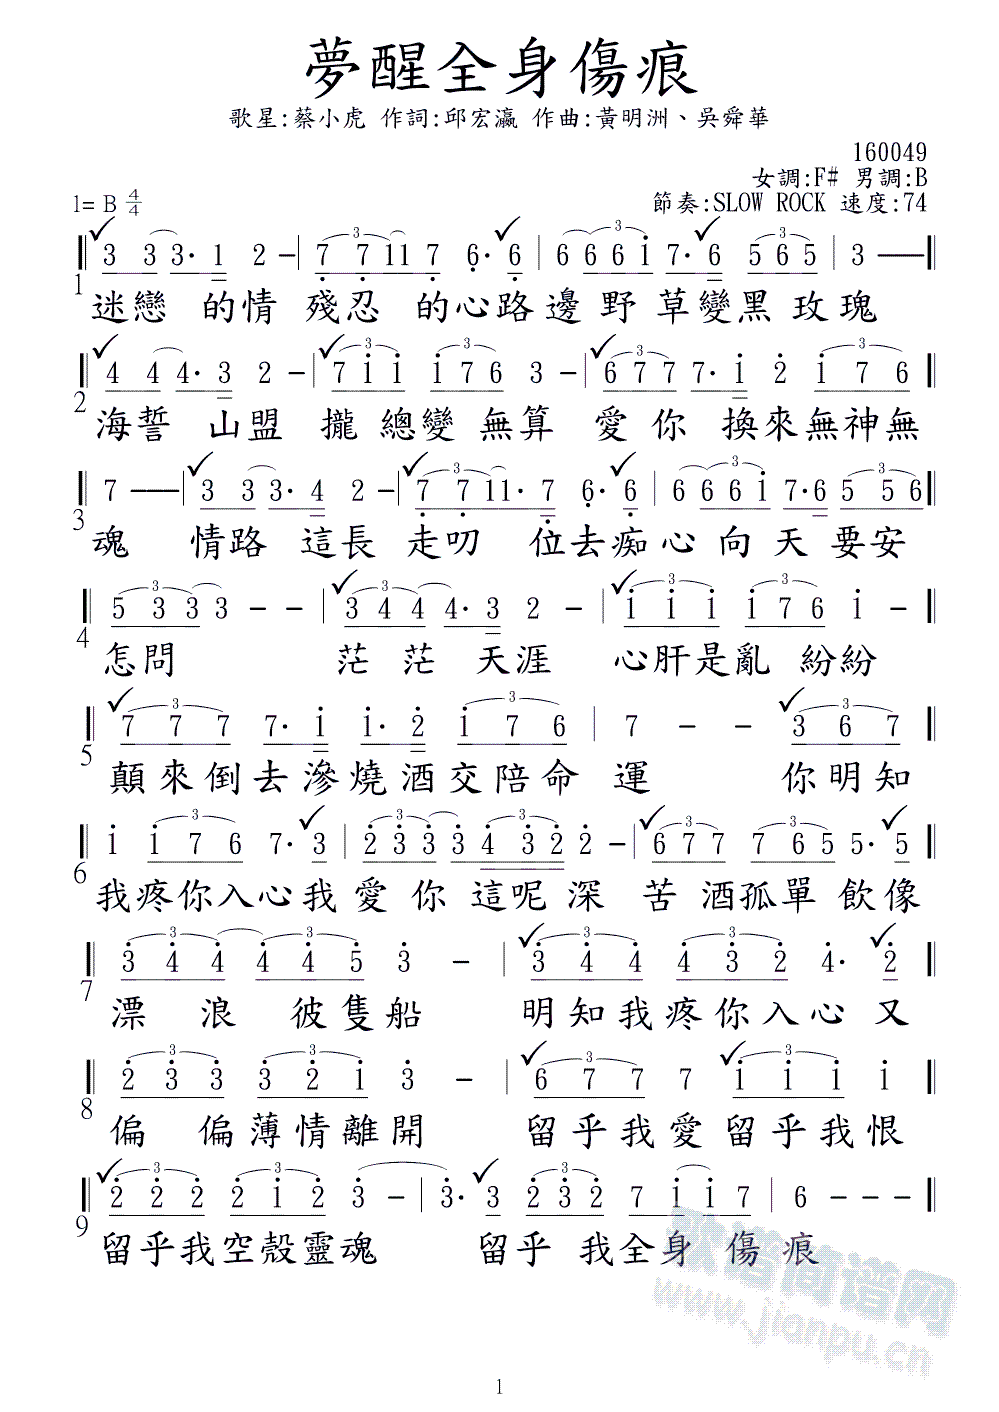 夢醒全身傷痕
歌星:蔡小虎 作詞:邱宏瀛 作曲:黃明洲、吳舜華
160049
女調:F# 男調:B
1= B 4/4 節奏:SLOW ROCK 速度:74
3 3 3· 1 2 - | 7 7 1 1 7 6· 6 | 6 6 6 1 7· 6 5 6 5 | 3 ——
1 迷戀 的情 殘忍 的心路邊野草變黑玫瑰
4 4 4· 3 2 - | 7 1 1 1 7 6 3 - | 6 7 7 7· 1 2 1 7 6
2 海誓 山盟 攏總變無算 愛你 換來無神無
7 —— | 3 3 3· 4 2 - | 7 7 1 1· 7 6· 6 | 6 6 6 1 7· 6 5 5 6
3 魂 情路 這長 走叨 位去痴心向天要安
5 3 3 3 - - | 3 4 4 4· 3 2 - | 1 1 1 1 7 6 1 -
4 怎問 茫茫 天涯 心肝是亂紛紛
7 7 7 7· 1 1· 2 1 7 6 | 7 - - 3 6 7
5 顛來倒去滲燒酒交陪命運 你明知
1 1 7 6 7· 3 | 2 3 3 3 4 3 2 2 - | 6 7 7 7 6 5 5· 5
6 我疼你入心我愛你這呢深 苦酒孤單飲像
3 4 4 4 4 5 3 - | 3 4 4 4 3 2 4· 2
7 漂浪彼隻船 明知我疼你入心又
2 3 3 3 2 1 3 - | 6 7 7 7 1 1 1 1
8 偏偏薄情離開 留乎我愛留乎我恨
2 2 2 2 1 2 3 - | 3· 3 2 3 2 7 1 1 7 | 6 - - -
9 留乎我空殼靈魂 留乎 我全身 傷 痕
歌谱简谱网
www.jianpu.cn
1